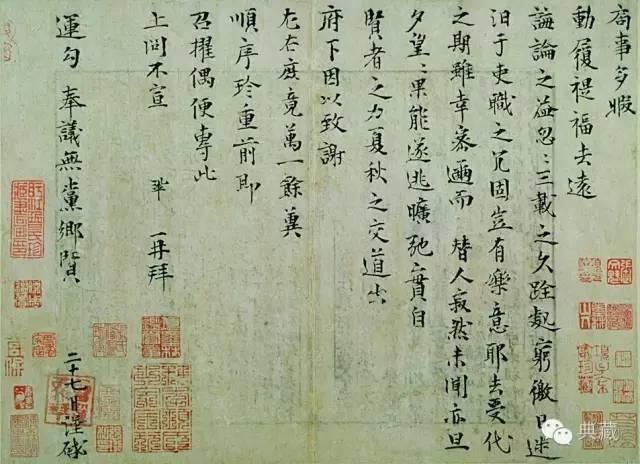 局事多暇
動履禔福去遠
誨論之益忽〻三載之久跧處窮徼日迷
汩于吏職之冗固豈有樂意耶去受代
之期雖幸密邇而替人寂然未聞亦旦
夕望〻果能遂逃曠弛之責自
賢者之力夏秋之交道出
府下因以致謝
左右庶竟萬一餘冀
順序珍重前即
召擢偶便專此
上問不宣 鞏 再拜
運勾奉議無黨鄉賢 二十七日謹啟
典藏